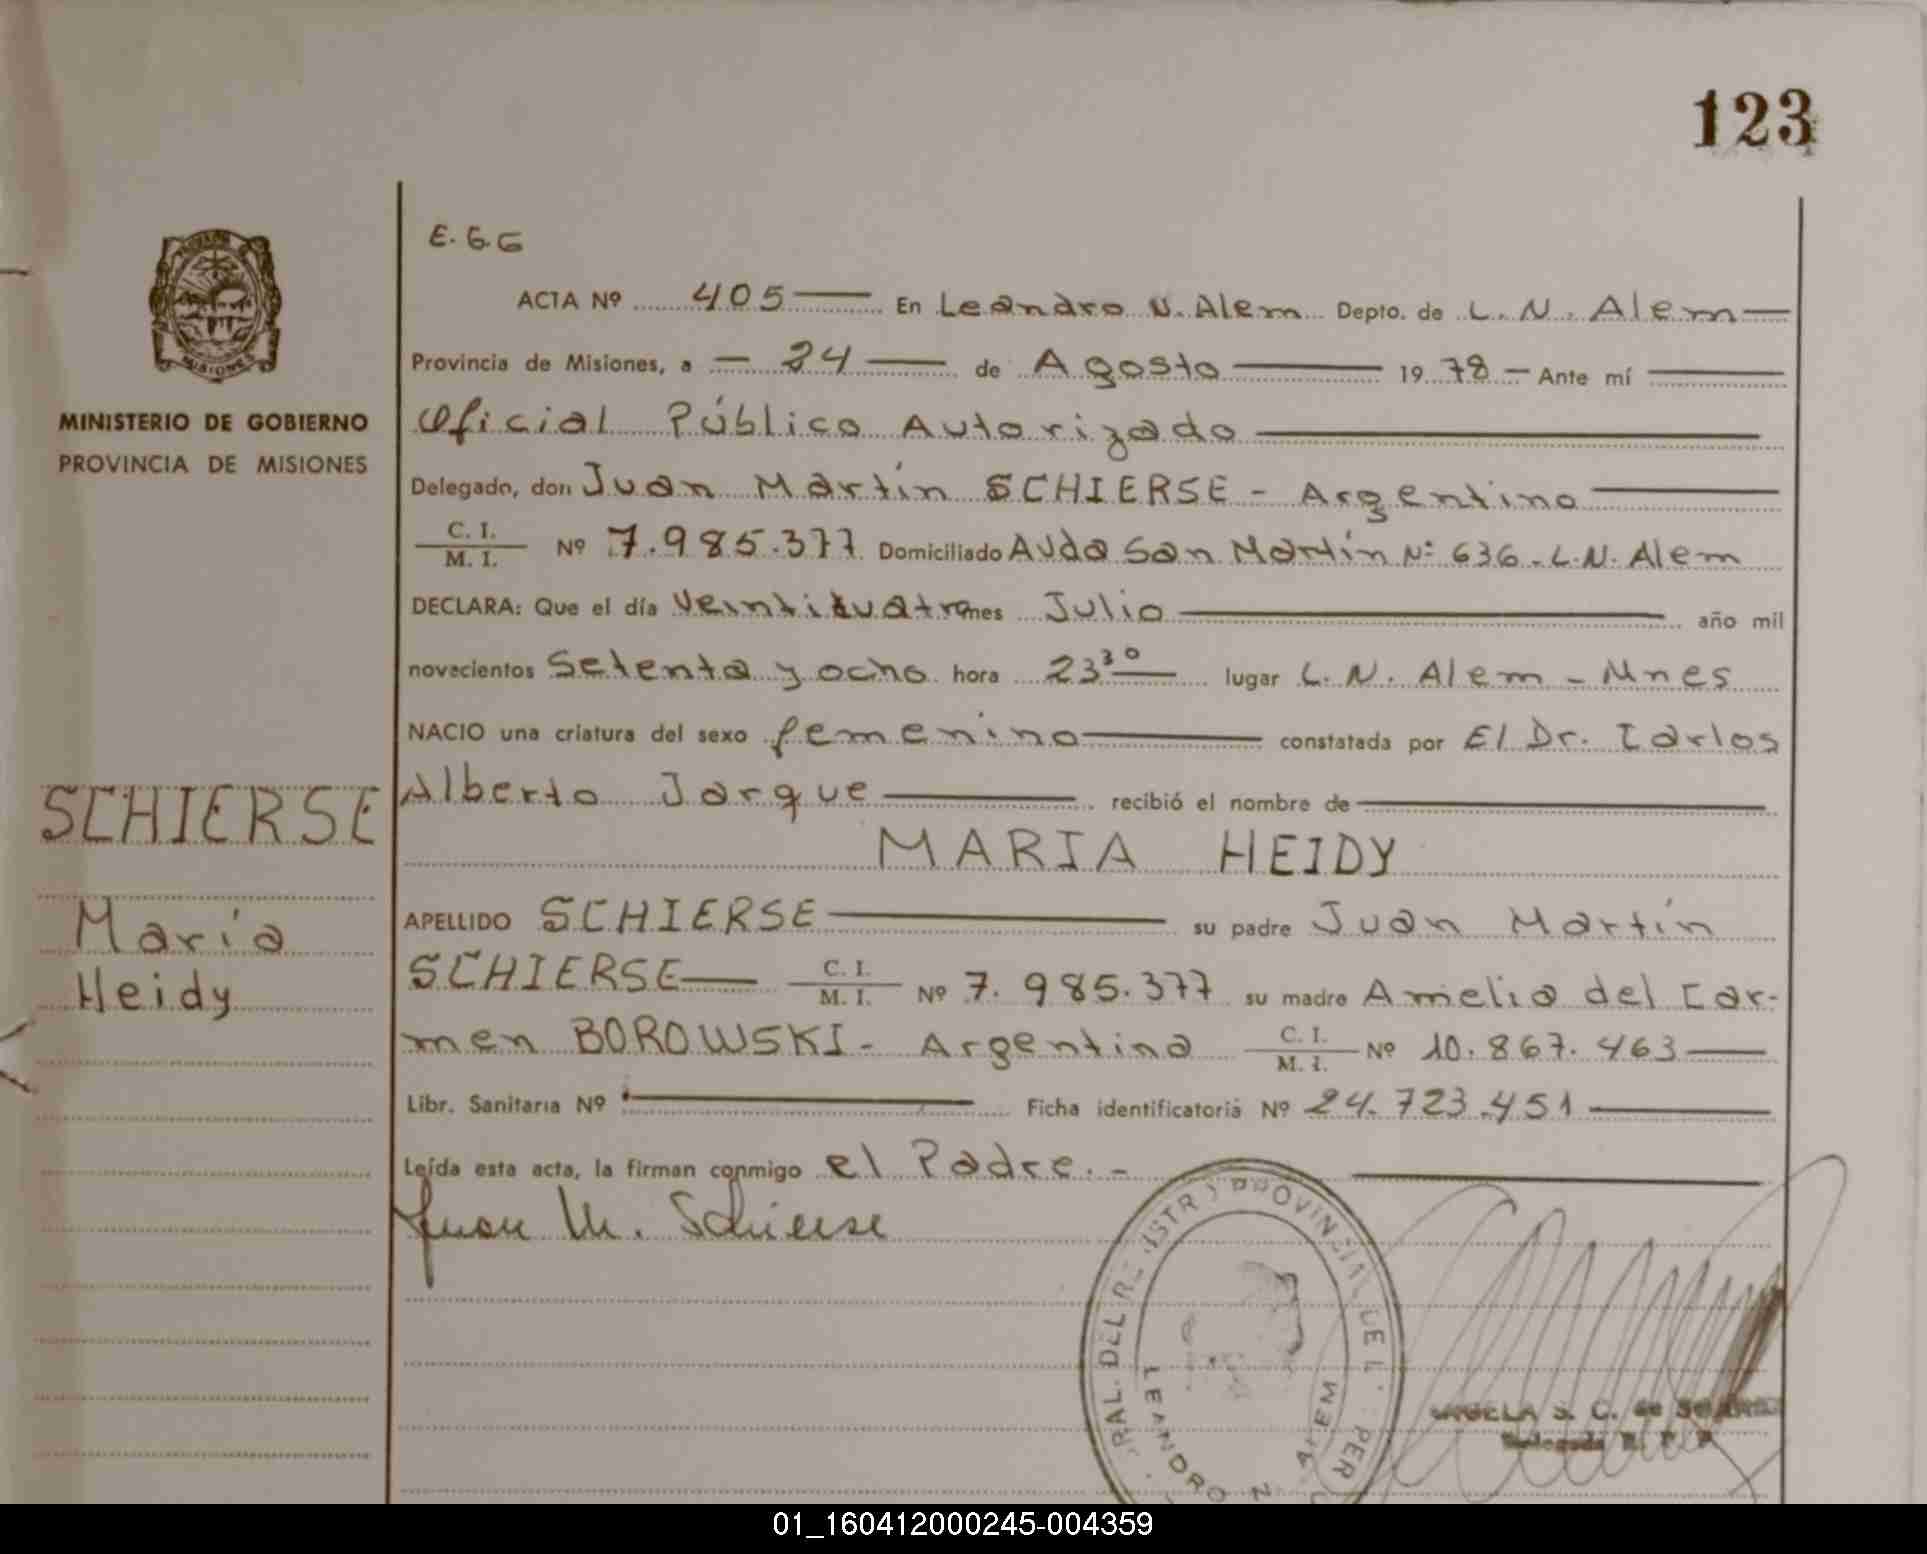 123
E. G. G
ACTA Nº 405 En Leandro N. Alem Depto. de L. N. Alem
Provincia de Misiones, a 24 de Agosto 1978 Ante mí
Oficial Público Autorizado
MINISTERIO DE GOBIERNO
PROVINCIA DE MISIONES
Delegado, don Juan Martín SCHIERSE - Argentino
C. I. / M. I. Nº 7.985.377 Domiciliado Avda San Martín Nº 636 - L. N. Alem
DECLARA: Que el día Veinticuatro mes Julio año mil
novecientos Setenta y ocho hora 23³⁰ lugar L. N. Alem - Mnes
NACIO una criatura del sexo femenino constatada por El Dr. Carlos
Alberto Jarque recibió el nombre de
MARIA HEIDY
SCHIERSE
María
Heidy
APELLIDO SCHIERSE su padre Juan Martín
SCHIERSE C. I. / M. I. Nº 7.985.377 su madre Amelia del Car-
men BOROWSKI - Argentina C. I. / M. I. Nº 10.867.463
Libr. Sanitaria Nº Ficha identificatoria Nº 24.723.451
Leída esta acta, la firman conmigo el Padre. -
Juan M. Schierse
PROVINCIAL DE
LEANDRO N. ALEM
S. C. de
01_160412000245-004359